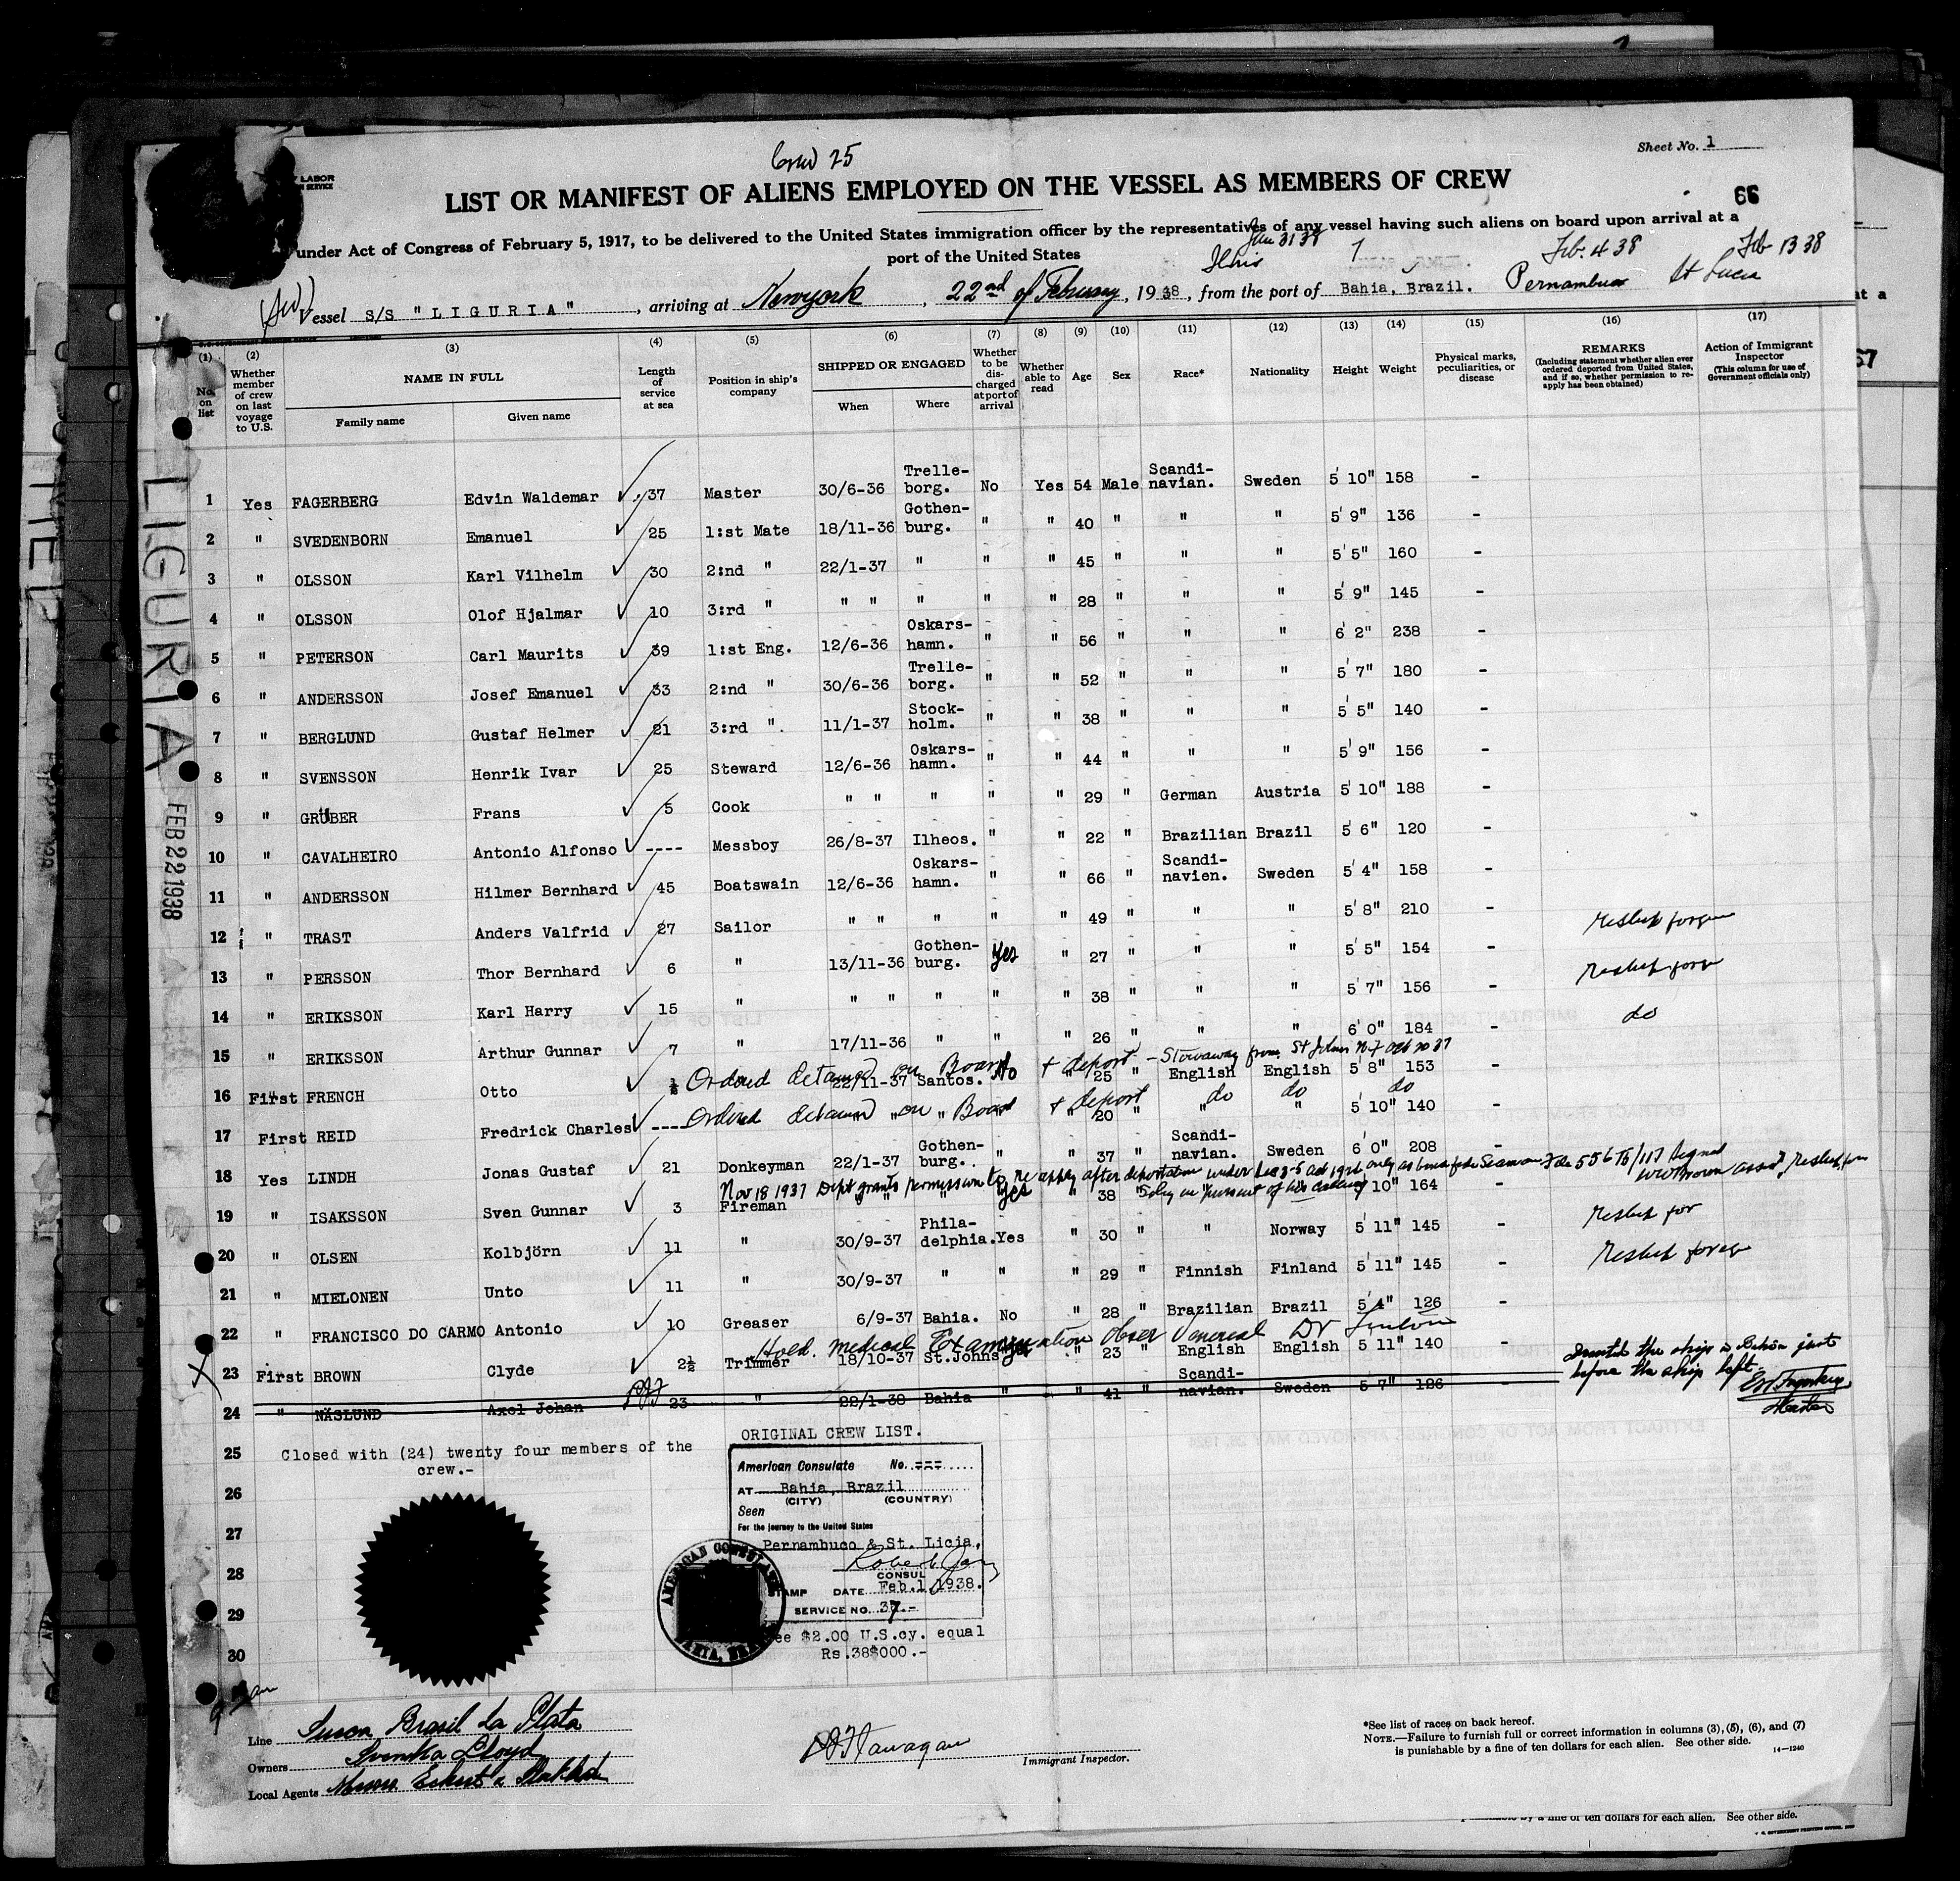 Crew 25
Sheet No. 1
LABOR
SERVICE
LIST OR MANIFEST OF ALIENS EMPLOYED ON THE VESSEL AS MEMBERS OF CREW
66
under Act of Congress of February 5, 1917, to be delivered to the United States immigration officer by the representatives of any vessel having such aliens on board upon arrival at a
port of the United States
Jan 31 38 Feb. 4 38 Feb 13 38
Vessel S/S "LIGURIA", arriving at Newyork, 22nd of February, 1938, from the port of Bahia, Brazil. Pernambuco St Lucia
(1) No. on list
(2) Whether member of crew on last voyage to U.S.
(3) NAME IN FULL
Family name Given name
(4) Length of service at sea
(5) Position in ship's company
(6) SHIPPED OR ENGAGED
When Where
(7) Whether to be discharged at port of arrival
(8) Whether able to read
(9) Age
(10) Sex
(11) Race*
(12) Nationality
(13) Height
(14) Weight
(15) Physical marks, peculiarities, or disease
(16) REMARKS (Including statement whether alien ever ordered deported from United States, and if so, whether permission to re-apply has been obtained)
(17) Action of Immigrant Inspector (This column for use of Government officials only)
LIGURIA
FEB 22 1938
1 Yes FAGERBERG Edwin Waldemar 37 Master 30/6-36 Trelle-borg. No Yes 54 Male Scandi-navian. Sweden 5' 10" 158 -
2 " SVEDENBORN Emanuel 25 1:st Mate 18/11-36 Gothen-burg. " " 40 " " " 5' 9" 136 -
3 " OLSSON Karl Vilhelm 30 2:nd " 22/1-37 " " " 45 " " " 5' 5" 160 -
4 " OLSSON Olof Hjalmar 10 3:rd " " " " " " 28 " " " 5' 9" 145 -
5 " PETERSON Carl Maurits 39 1:st Eng. 12/6-36 Oskars-hamn. " " 56 " " " 6' 2" 238 -
6 " ANDERSSON Josef Emanuel 33 2:nd " 30/6-36 Trelle-borg. " " 52 " " " 5' 7" 180 -
7 " BERGLUND Gustaf Helmer 21 3:rd ". 11/1-37 Stock-holm. " " 38 " " " 5' 5" 140 -
8 " SVENSSON Henrik Ivar 25 Steward 12/6-36 Oskars-hamn. " " 44 " " " 5' 9" 156 -
9 " GRUBER Frans 5 Cook " " " " " 29 " German Austria 5' 10" 188 -
10 " CAVALHEIRO Antonio Alfonso ---- Messboy 26/8-37 Ilheos. " " 22 " Brazilian Brazil 5' 6" 120 -
11 " ANDERSSON Hilmer Bernhard 45 Boatswain 12/6-36 Oskars-hamn. " " 66 " Scandi-navien. Sweden 5' 4" 158 -
12 " TRAST Anders Valfrid 27 Sailor " " " " " 49 " " " 5' 8" 210 -
13 " PERSSON Thor Bernhard 6 " 13/11-36 Gothen-burg. Yes " 27 " " " 5' 5" 154 -
14 " ERIKSSON Karl Harry 15 " " " " " " 38 " " " 5' 7" 156 -
15 " ERIKSSON Arthur Gunnar 7 " 17/11-36 " " " 26 " " " 6' 0" 184 - do
Ordered detained on Board + deport - Stowaway from St Johns N.F. Oct 20 37
16 First FRENCH Otto ½ 22/11-37 Santos. No " 25 " English English 5' 8" 153 -
Ordered detained on Board + deport do do do
17 First REID Fredrick Charles ---- " " " " 20 " " " 5' 10" 140 -
18 Yes LINDH Jonas Gustaf 21 Donkeyman 22/1-37 Gothen-burg. " " 37 " Scandi-navian. Sweden 6' 0" 208 -
Nov 18 1937 Dept grants permission to re apply after deportation under Sec 3-5 act only as bona fide Seaman
solely in pursuit of his calling
19 " ISAKSSON Sven Gunnar 3 Fireman " " " Yes " 38 " " " 5' 10" 164 -
20 " OLSEN Kolbjörn 11 " 30/9-37 Phila-delphia. Yes " 30 " " Norway 5' 11" 145 -
21 " MIELONEN Unto 11 " 30/9-37 " " " 29 " Finnish Finland 5' 11" 145 -
22 " FRANCISCO DO CARMO Antonio 10 Greaser 6/9-37 Bahia. No " 28 " Brazilian Brazil 5' 4" 126 -
Hold. medical Examination Obser Venereal Dr
23 First BROWN Clyde 2½ Trimmer 18/10-37 St.Johns Yes " 23 " English English 5' 11" 140 -
24 " NÄSLUND Axel Johan 23 " 22/1-38 Bahia " " 41 " Scandi-navian. Sweden 5' 7" 126 -
Deserted the ship in Bahia just
before the ship left.
Master
25 Closed with (24) twenty four members of the
crew.-
26
27
28
29
30
ORIGINAL CREW LIST.
American Consulate No. ===
AT Bahia, Brazil
(CITY) (COUNTRY)
Seen
For the journey to the United States
Pernambuco & St. Licia,
CONSUL
STAMP DATE Feb.1, 1938.
SERVICE NO. 37.-
ee $2.00 U.S.cy. equal
Rs.38$000.-
AMERICAN CONSULATE
BAHIA, BRAZIL
Line Suecia Brasil La Plata
Owners Svenska Lloyd
Local Agents
Immigrant Inspector.
*See list of races on back hereof.
NOTE.—Failure to furnish full or correct information in columns (3), (5), (6), and (7)
is punishable by a fine of ten dollars for each alien. See other side.
14—1240
at a
67
by a fine of ten dollars for each alien. See other side.